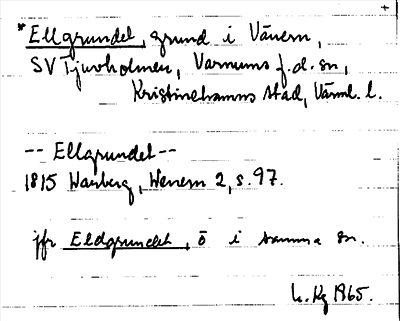 *Ellgrundet, grund i Vänern,
SV Tjuvholmen, Varnums f.d. sn,
Kristinehamns stad, Värml. l.
-- Ellgrundet --
1815 Warberg, Wenern 2, s. 97.
jfr Eldgrundet, ö i samma sn.
1965.